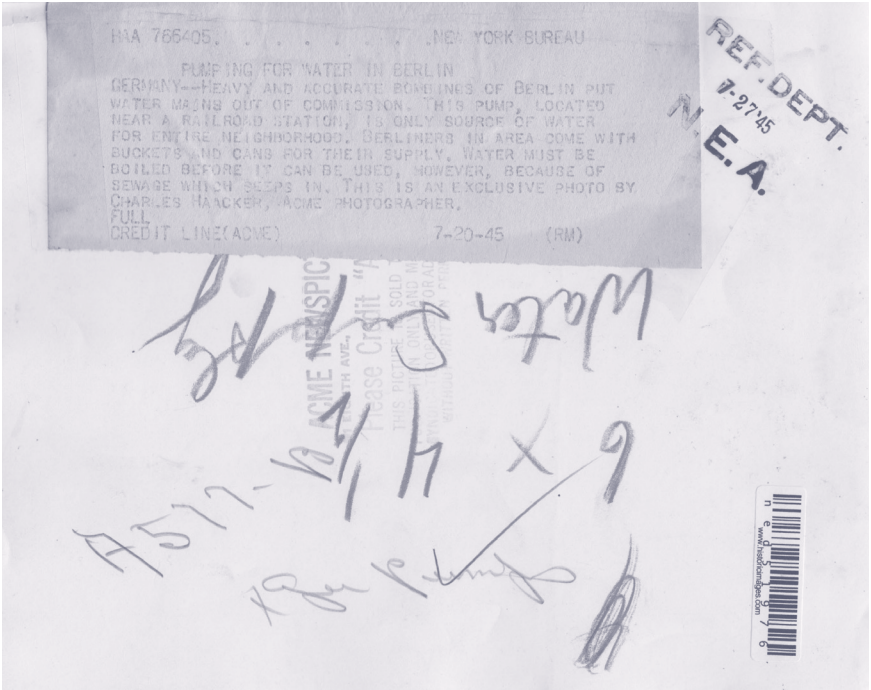 HAA 765405. . . . . . . .NEW YORK BUREAU
PUMPING FOR WATER IN BERLIN
GERMANY--HEAVY AND ACCURATE BOMBINGS OF BERLIN PUT
WATER MAINS OUT OF COMMISSION. THIS PUMP, LOCATED
NEAR A RAILROAD STATION, IS ONLY SOURCE OF WATER
FOR ENTIRE NEIGHBORHOOD. BERLINERS IN AREA COME WITH
BUCKETS AND CANS FOR THEIR SUPPLY. WATER MUST BE
BOILED BEFORE IT CAN BE USED, HOWEVER, BECAUSE OF
SEWAGE WHICH SEEPS IN. THIS IS AN EXCLUSIVE PHOTO BY
CHARLES HAACKER, ACME PHOTOGRAPHER.
FULL
CREDIT LINE(ACME) 7-20-45 (RM)
REF. DEPT.
7-27'45
N. E. A.
ACME NEWSPIC
TH AVE.,
Please Credit "A
THIS PICTURE SOLD
Water Supply
6 x 4 1/2
ned51976
www.historicimages.com